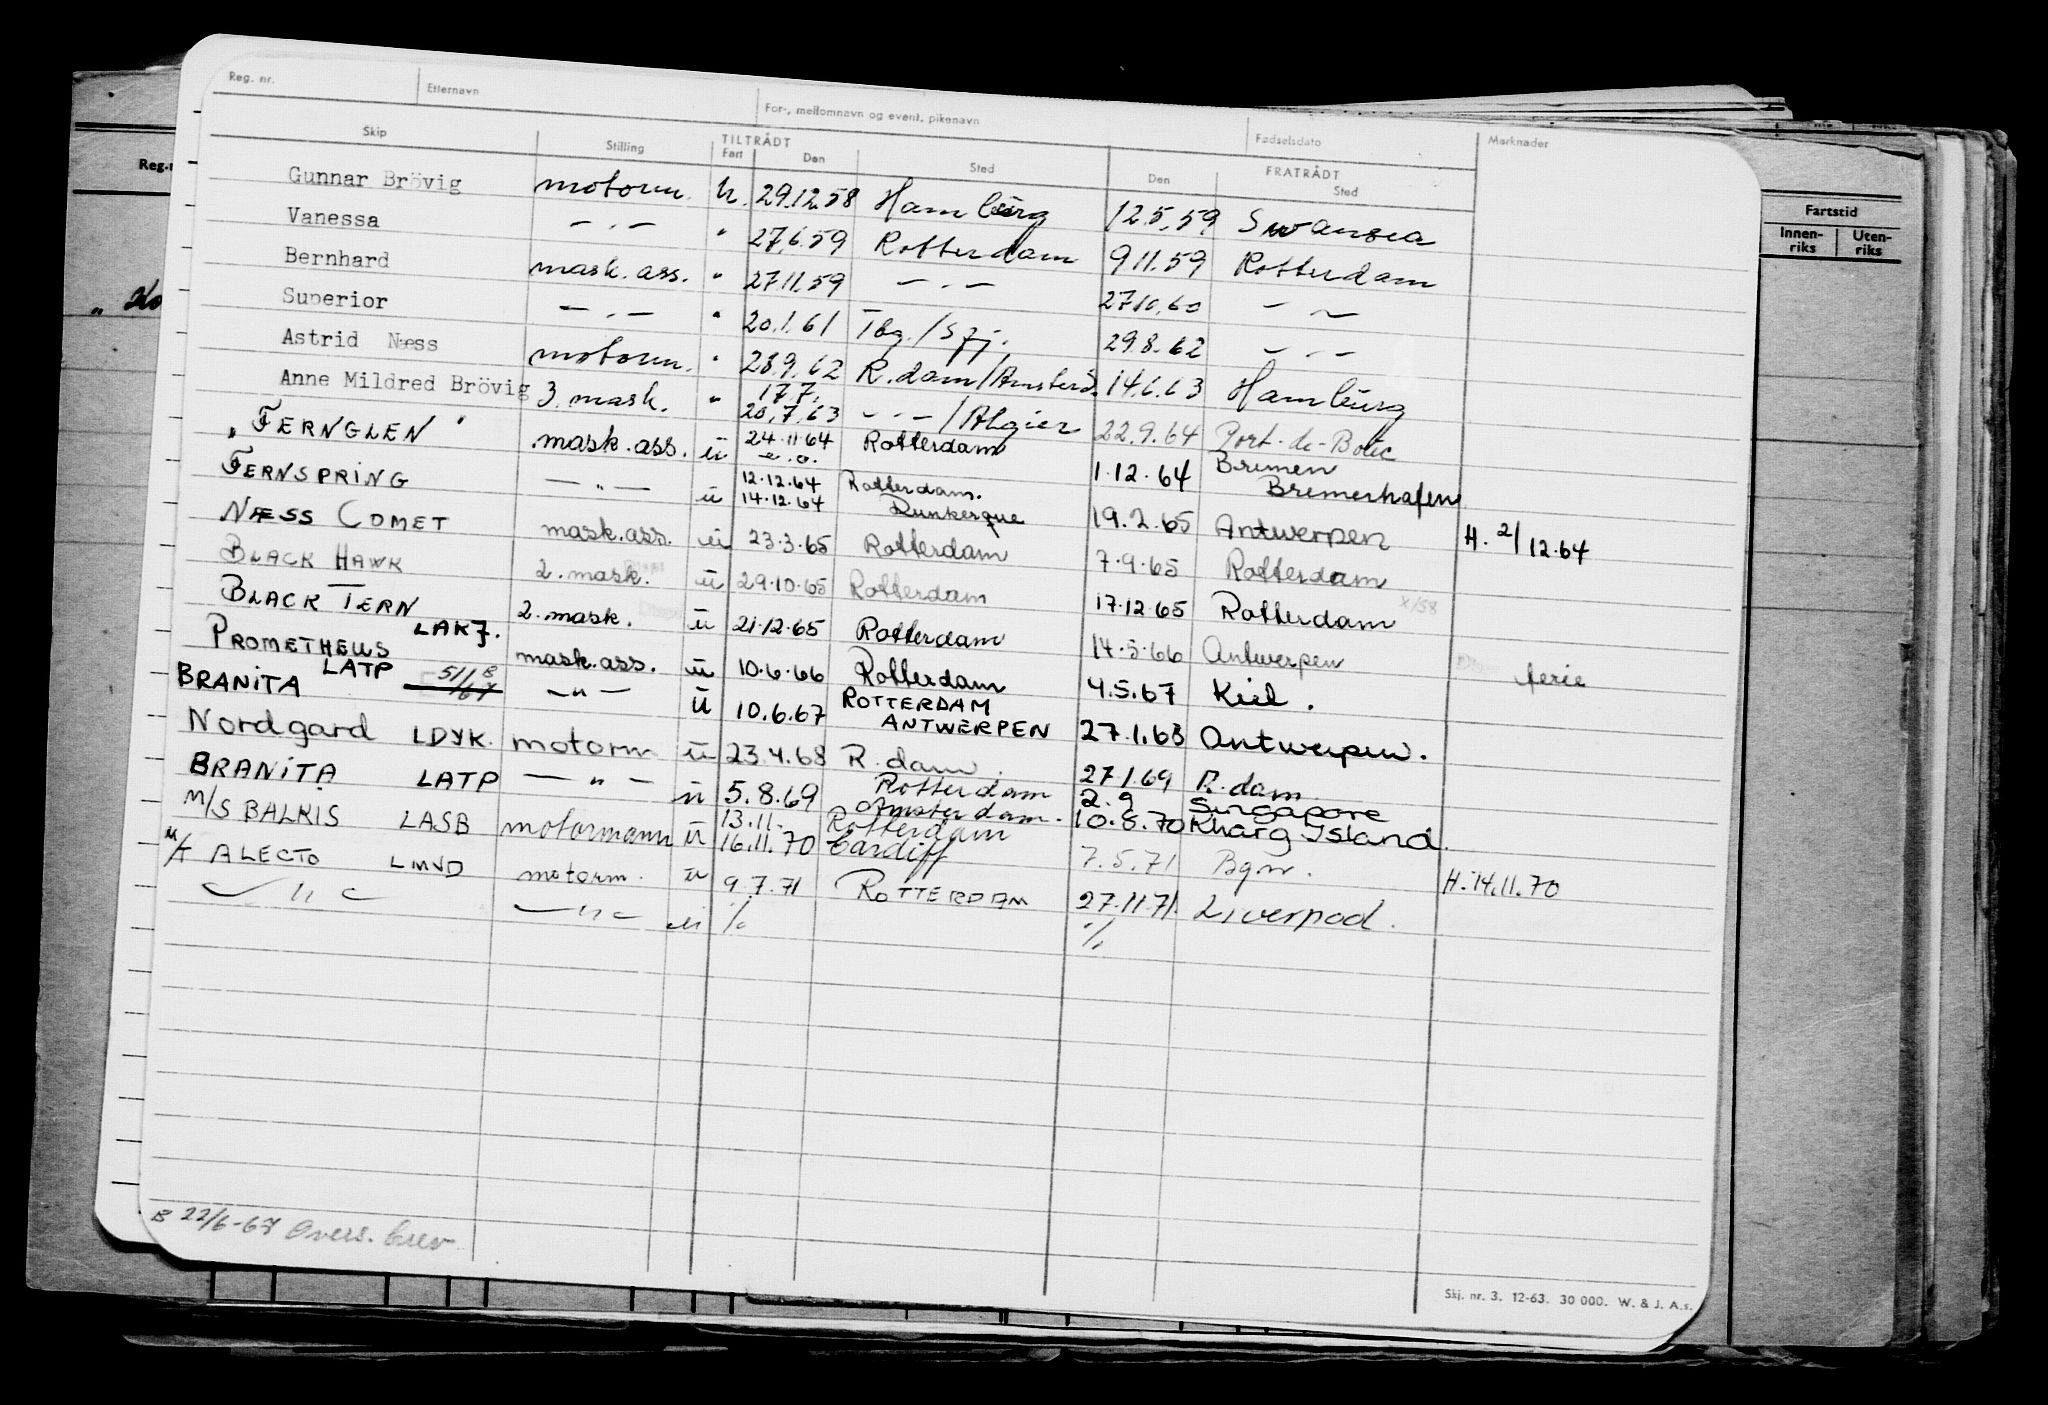 Reg. nr. Etternavn For-, mellomnavn og event. pikenavn Fødselsdato Merknader
Skip Stilling TILTRÅDT Fart Den Sted FRATRÅDT Den Sted
Gunnar Brövig motorm. u. 29.12.58 Hamburg 12.5.59 Swansea
Vanessa — . — " 27.6.59 Rotterdam 9.11.59 Rotterdam
Bernhard mask. ass. " 27.11.59 — . — 27.10.60 — —
Superior — . — " 20.1.61 Tbg./Spj. 29.8.62 — . —
Astrid Næss motorm. " 28.9.62 R.dam/Amsterd. 14.6.63 Hamburg
Anne Mildred Brövig 3. mask. " 17.7. 20.7.63 — . — /Algier 22.9.64 Port-de-Bouc
"FERNGLEN" mask. ass. ü 24.11.64 Rotterdam 1.12.64 Bremen Bremerhafen
FERNSPRING — " — ü 12.12.64 14.12.64 Rotterdam. Dunkerque 19.2.65 Antwerpen H. 2/12.64
NÆSS COMET mask. ass. ü 23.3.65 Rotterdam 7.9.65 Rotterdam
BLACK HAWK 2. mask. ü 29.10.65 Rotterdam 17.12.65 Rotterdam
BLACK TERN 2. mask. ü 21.12.65 Rotterdam 14.5.66 Antwerpen ferie
PROMETHEUS LAKJ. mask. ass. ü 10.6.66 Rotterdam 4.5.67 Kiel.
BRANITA LATP — " — ü 10.6.67 ROTTERDAM ANTWERPEN 27.1.68 Antwerpen.
Nordgard LDYK. motorm ü 23.4.68 R.dam. 27.1.69 R.dam
BRANITA LATP — " — ü 5.8.69 Rotterdam Amsterdam. 2.9 10.8.70 Singapore Kharg Island.
M/S BALKIS LASB motormann ü 13.11.- 16.11.70 Rotterdam Cardiff 7.5.71 Bgn. H. 14.11.70
M/T ALECTO LMVD motorm. ü 9.7.71 ROTTERDAM 27.11.71. Liverpool.
— " — — " — ü % %
B 22/6-67 Overs. brev
Skj. nr. 3. 12-63. 30 000. W. & J. A.s.
Reg.
Fartstid
Innen- Uten-
riks riks